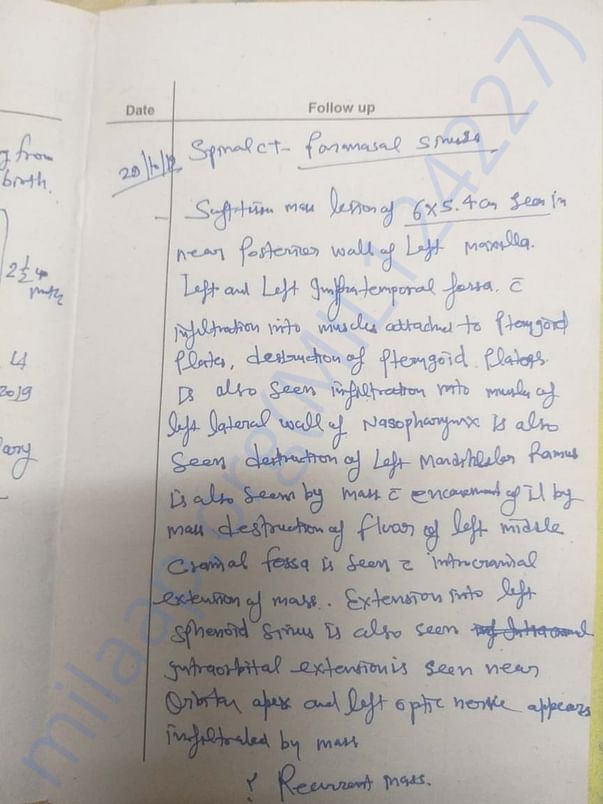 g from
birth.
2½
4
2019
Date Follow up
Spinal CT - Paranasal Sinuses
- Soft tissue mass lesion of 6x5.4cm seen in
near Posterior wall of Left Maxilla.
Left and Left Infratemporal fossa. c̄
infiltration into muscles attached to Pterygoid
Plates, destruction of Pterygoid. Plates
is also seen infiltration into muscles of
left lateral wall of Nasopharynx is also
seen destruction of Left Mandibular Ramus
is also seen by mass c̄ encasement of it by
mass destruction of floor of left middle
cranial fossa is seen c̄ intracranial
extension of mass. Extension into left
sphenoid sinus is also seen
intraorbital extension is seen near
Orbital apex and left optic nerve appears
infiltrated by mass
? Recurrent mass.
milaap.org(MIL124227)